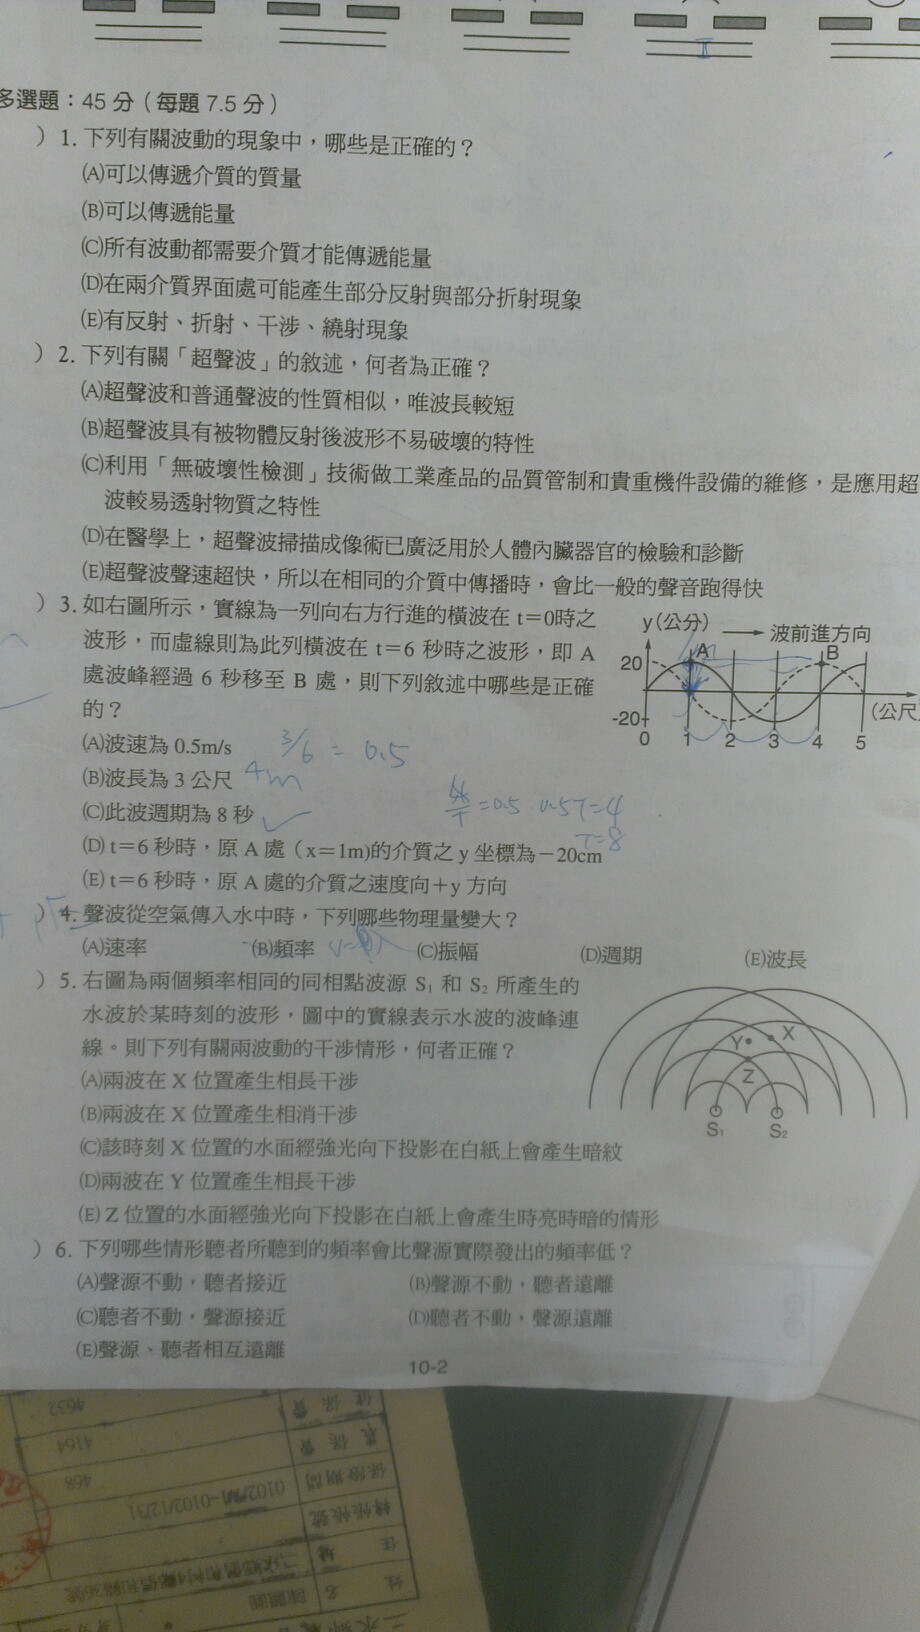 多選題：45 分（每題 7.5 分）
）1. 下列有關波動的現象中，哪些是正確的？
(A)可以傳遞介質的質量
(B)可以傳遞能量
(C)所有波動都需要介質才能傳遞能量
(D)在兩介質界面處可能產生部分反射與部分折射現象
(E)有反射、折射、干涉、繞射現象
）2. 下列有關「超聲波」的敘述，何者為正確？
(A)超聲波和普通聲波的性質相似，唯波長較短
(B)超聲波具有被物體反射後波形不易破壞的特性
(C)利用「無破壞性檢測」技術做工業產品的品質管制和貴重機件設備的維修，是應用超
波較易透射物質之特性
(D)在醫學上，超聲波掃描成像術已廣泛用於人體內臟器官的檢驗和診斷
(E)超聲波聲速超快，所以在相同的介質中傳播時，會比一般的聲音跑得快
）3. 如右圖所示，實線為一列向右方行進的橫波在 t＝0時之
波形，而虛線則為此列橫波在 t＝6 秒時之波形，即 A
處波峰經過 6 秒移至 B 處，則下列敘述中哪些是正確
的？
y(公分)
波前進方向
A
B
20
-20
0 1 2 3 4 5
(公尺
(A)波速為 0.5m/s
3/6 = 0.5
(B)波長為 3 公尺
4m
(C)此波週期為 8 秒
=0.5 0.5T=4
T=8
(D) t＝6 秒時，原 A 處（x＝1m)的介質之 y 坐標為－20cm
(E) t＝6 秒時，原 A 處的介質之速度向＋y 方向
）4. 聲波從空氣傳入水中時，下列哪些物理量變大？
(A)速率 (B)頻率 (C)振幅 (D)週期 (E)波長
）5. 右圖為兩個頻率相同的同相點波源 S₁ 和 S₂ 所產生的
水波於某時刻的波形，圖中的實線表示水波的波峰連
線。則下列有關兩波動的干涉情形，何者正確？
(A)兩波在 X 位置產生相長干涉
(B)兩波在 X 位置產生相消干涉
(C)該時刻 X 位置的水面經強光向下投影在白紙上會產生暗紋
(D)兩波在 Y 位置產生相長干涉
(E) Z 位置的水面經強光向下投影在白紙上會產生時亮時暗的情形
Y X
Z
S₁ S₂
）6. 下列哪些情形聽者所聽到的頻率會比聲源實際發出的頻率低？
(A)聲源不動，聽者接近 (B)聲源不動，聽者遠離
(C)聽者不動，聲源接近 (D)聽者不動，聲源遠離
(E)聲源、聽者相互遠離
10-2
4632
4164
468
保險期間
轉帳帳號
住
姓 名